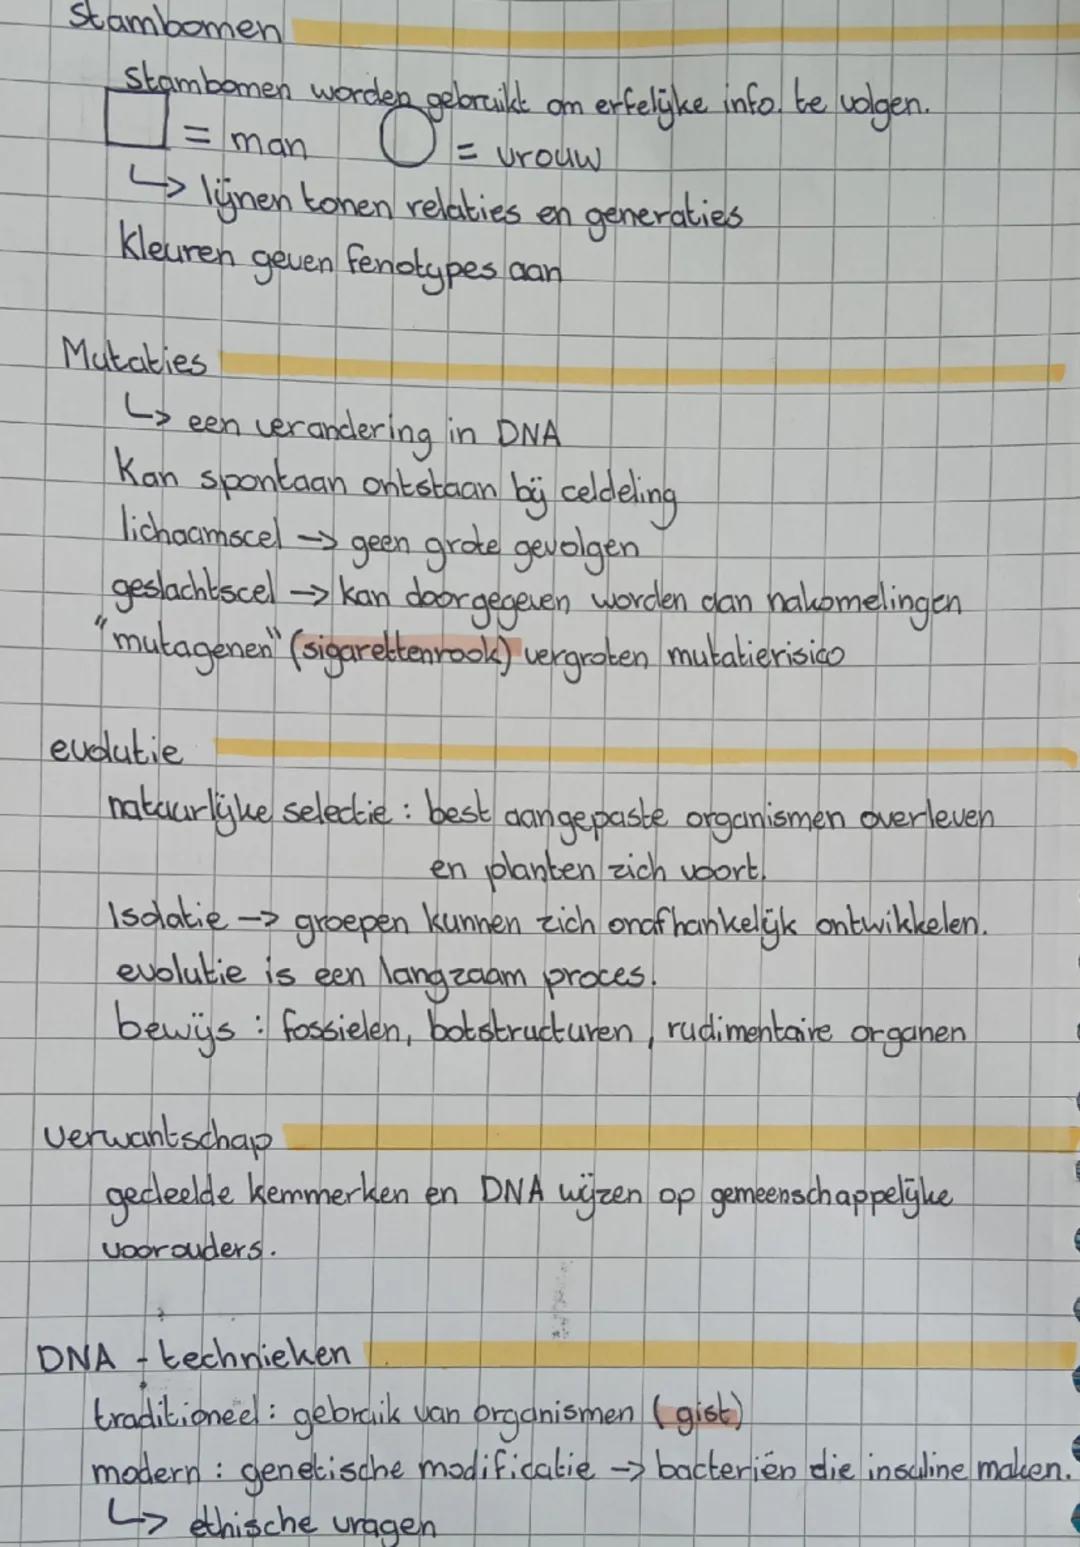 Stambomen
Stambomen worden gebruikt om erfelijke info. te volgen.
= man = vrouw
↳ lijnen tonen relaties en generaties
Kleuren geven fenotypes aan
Mutaties
↳ een verandering in DNA
Kan spontaan ontstaan bij celdeling
lichaamscel → geen grote gevolgen
geslachtscel → kan doorgegeven worden aan nakomelingen
"mutagenen" (sigarettenrook) vergroten mutatierisico
evolutie
natuurlijke selectie : best aangepaste organismen overleven
en planten zich voort.
Isolatie → groepen kunnen zich onafhankelijk ontwikkelen.
evolutie is een langzaam proces.
bewijs : fossielen, botstructuren, rudimentaire organen
verwantschap
gedeelde kemmerken en DNA wijzen op gemeenschappelijke
voorouders.
DNA - technieken
traditioneel : gebruik van organismen (gist)
modern : genetische modificatie → bacteriën die insuline maken.
↳ ethische vragen